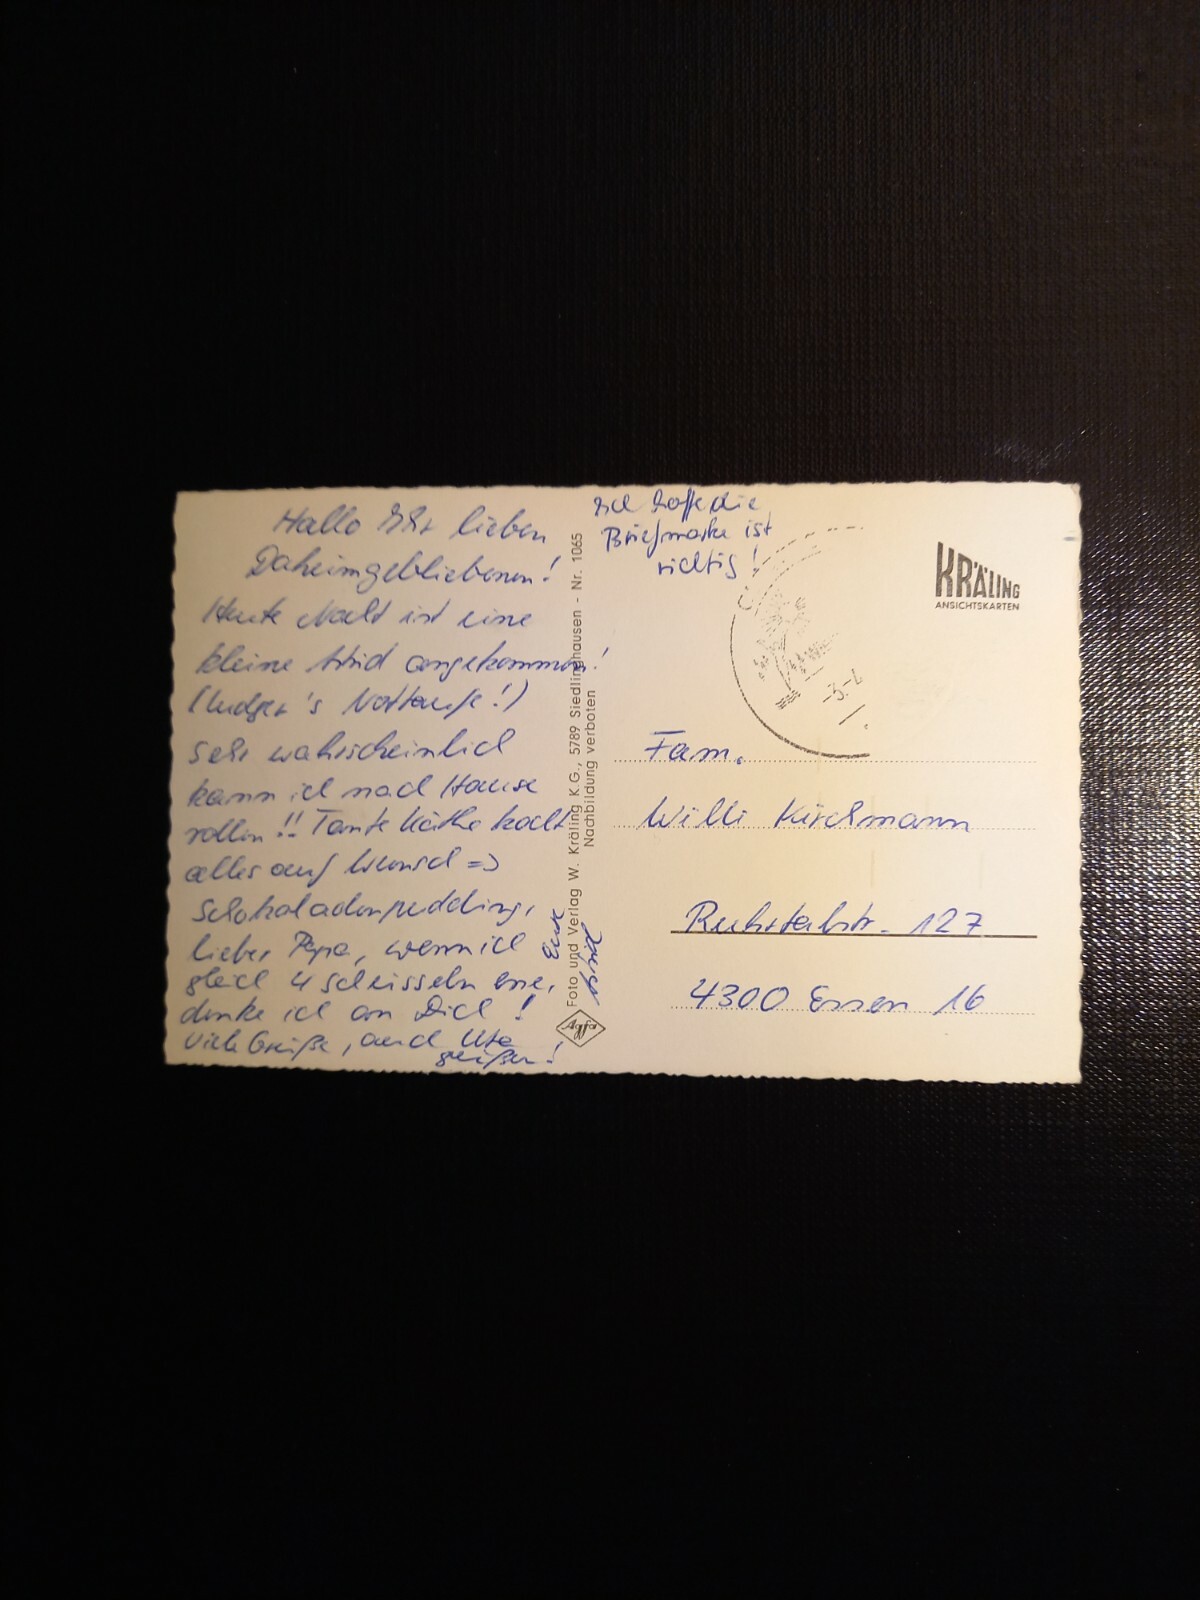 Hallo Ihr lieben
Daheimgebliebenen!
Heute Nacht ist eine
kleine angekommen!
(Ludger's Nottaufe!)
Sehr wahrscheinlich
kann ich nach Hause
rollen!! Tante Käthe kocht
alles auf Wunsch =>
Schokoladenpudding,
lieber Papa, wenn ich
gleich 4 Schüsseln esse,
denke ich an Dich!
Viele Grüße, auch Ute
grüßen!
Eure
Foto und Verlag W. Kräling K.G., 5789 Siedlinghausen - Nr. 1065
Nachbildung verboten
Agfa
Ich hoffe die
Briefmarke ist
richtig!
KRÄLING
ANSICHTSKARTEN
-3.-2
Fam.
Willi Kirchmann
Ruhrtalstr. 127
4300 Essen 16